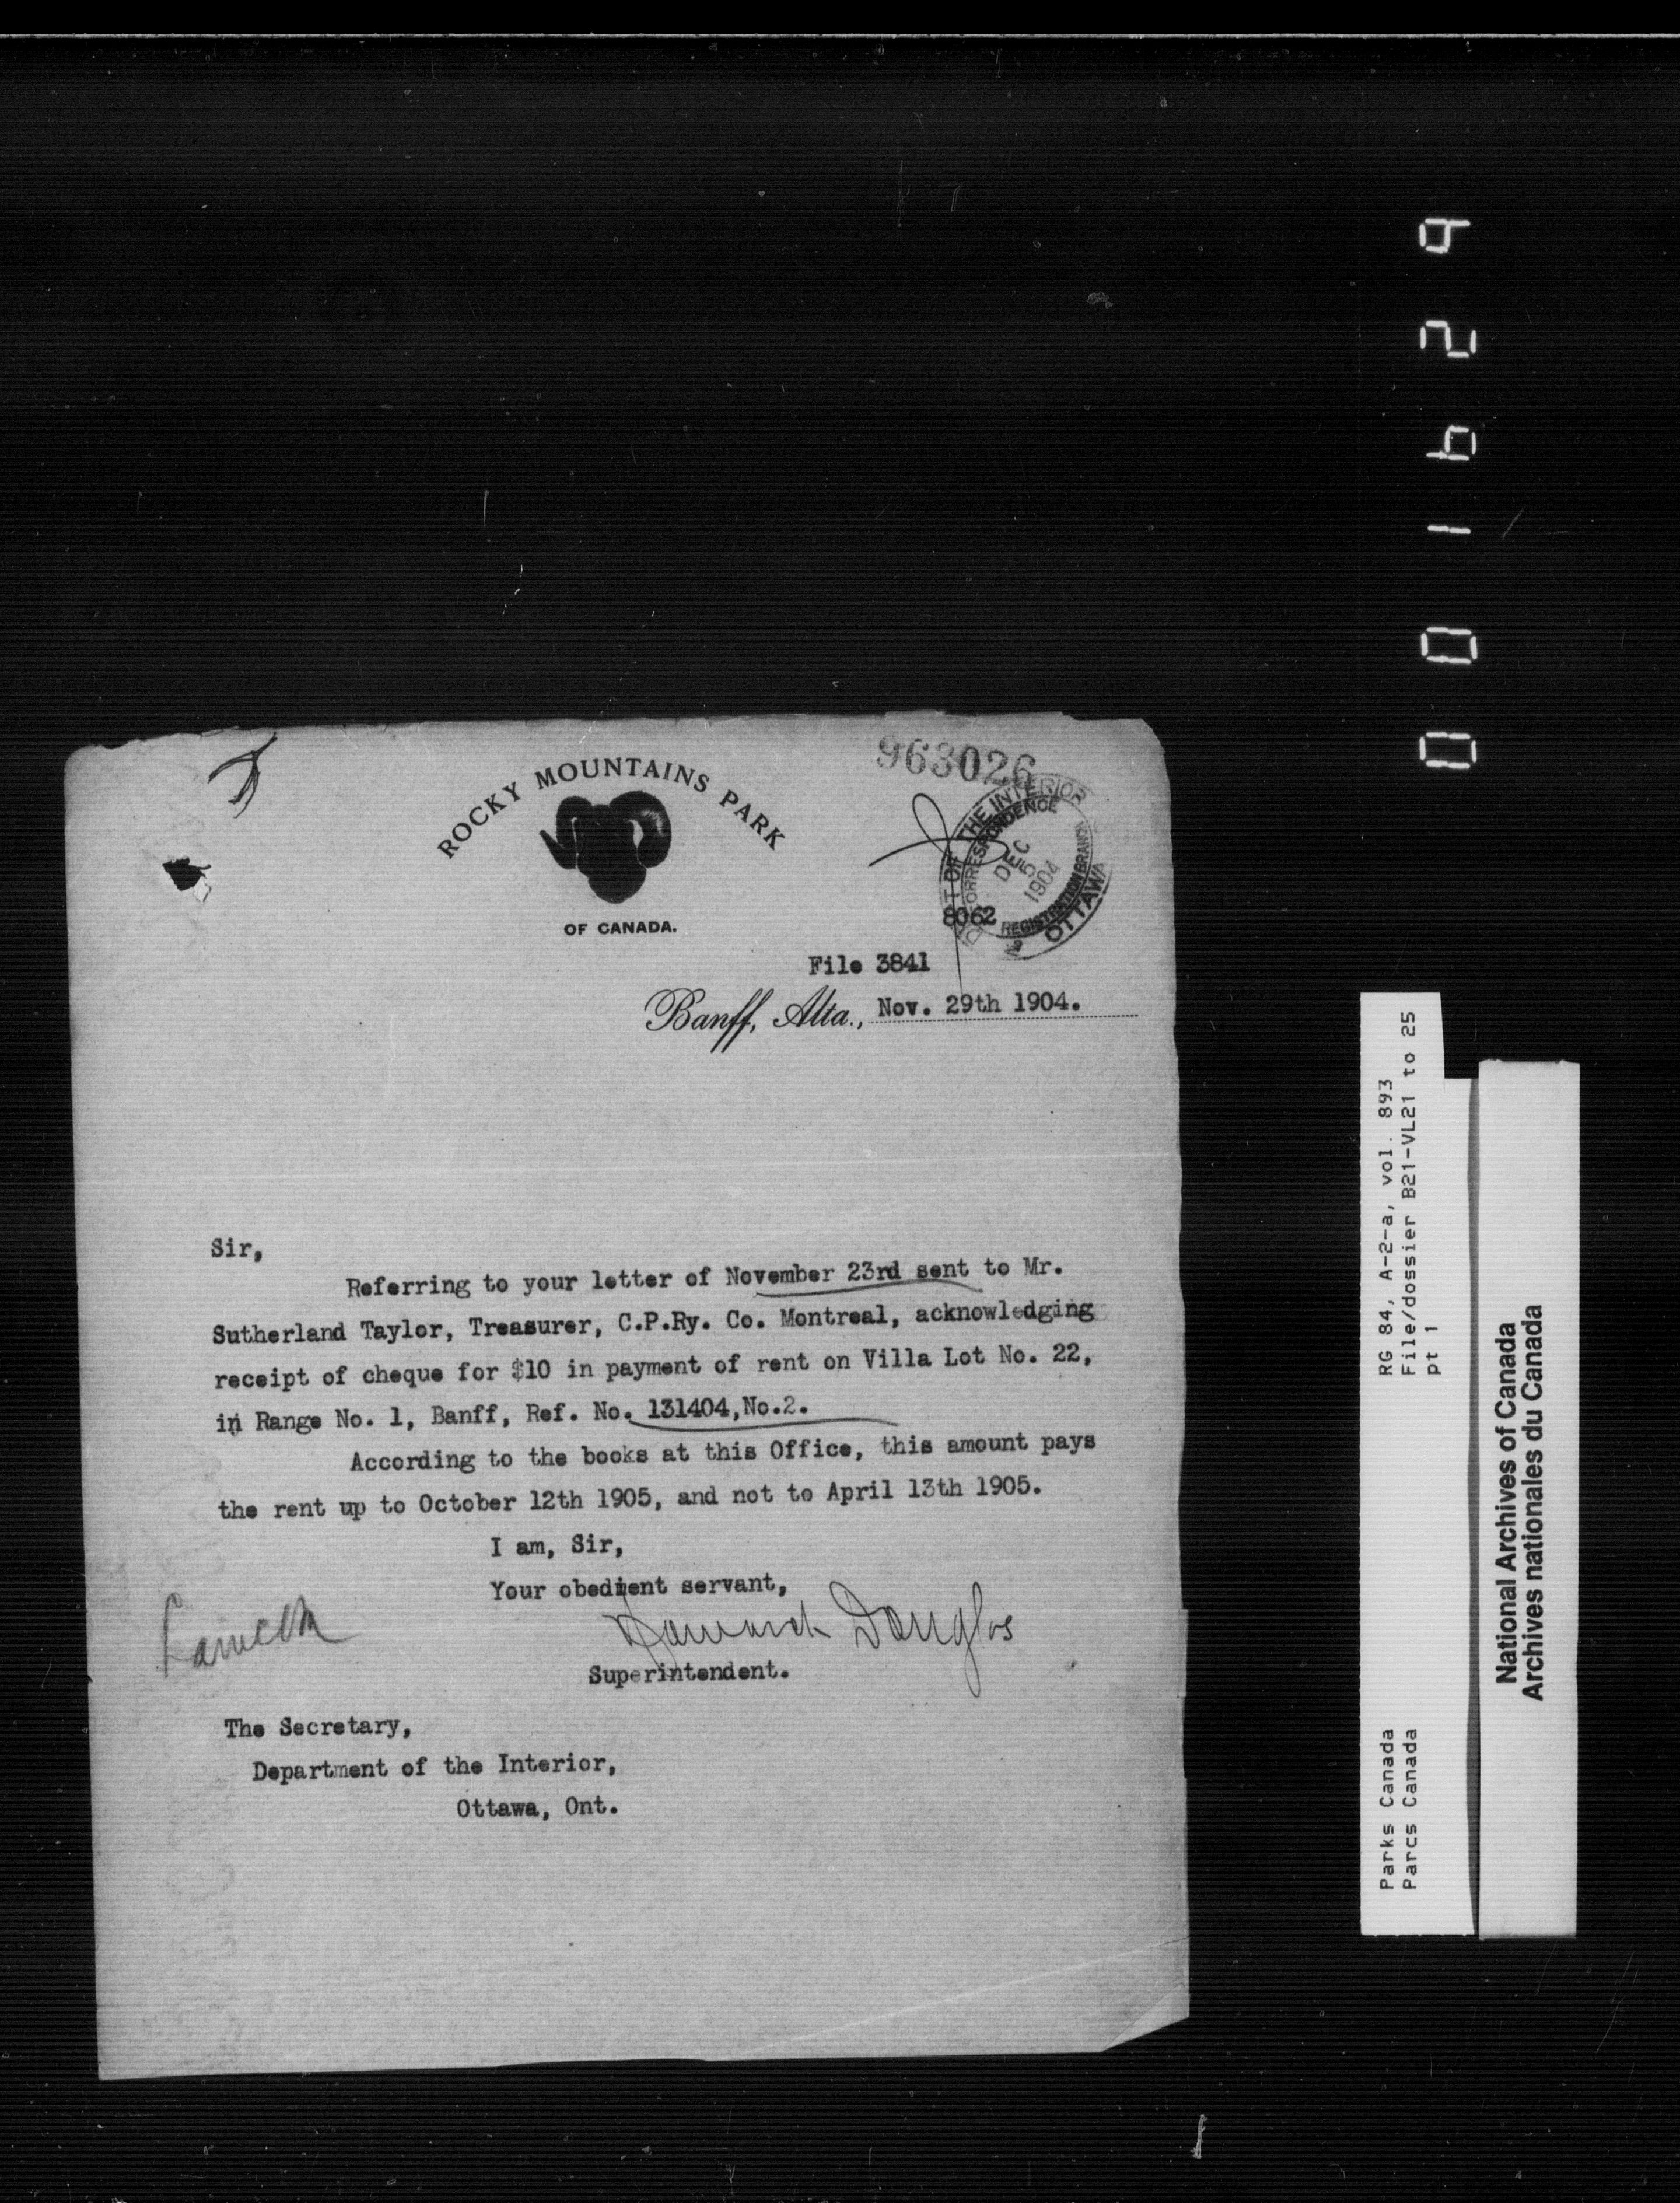 963026
ROCKY MOUNTAINS PARK
OF CANADA.
DEPT OF THE INTERIOR
CORRESPONDENCE
DEC
5
1904
REGISTRATION BRANCH
No
OTTAWA
8062
File 3841
Banff, Alta., Nov. 29th 1904.
Sir,
Referring to your letter of November 23rd sent to Mr.
Sutherland Taylor, Treasurer, C.P.Ry. Co. Montreal, acknowledging
receipt of cheque for $10 in payment of rent on Villa Lot No. 22,
in Range No. 1, Banff, Ref. No. 131404,No.2.
According to the books at this Office, this amount pays
the rent up to October 12th 1905, and not to April 13th 1905.
I am, Sir,
Your obedient servant,
Howard Douglas
Superintendent.
The Secretary,
Department of the Interior,
Ottawa, Ont.
001629
RG 84, A-2-a, vol. 893
File/dossier B21-VL21 to 25
pt 1
Parks Canada
Parcs Canada
National Archives of Canada
Archives nationales du Canada